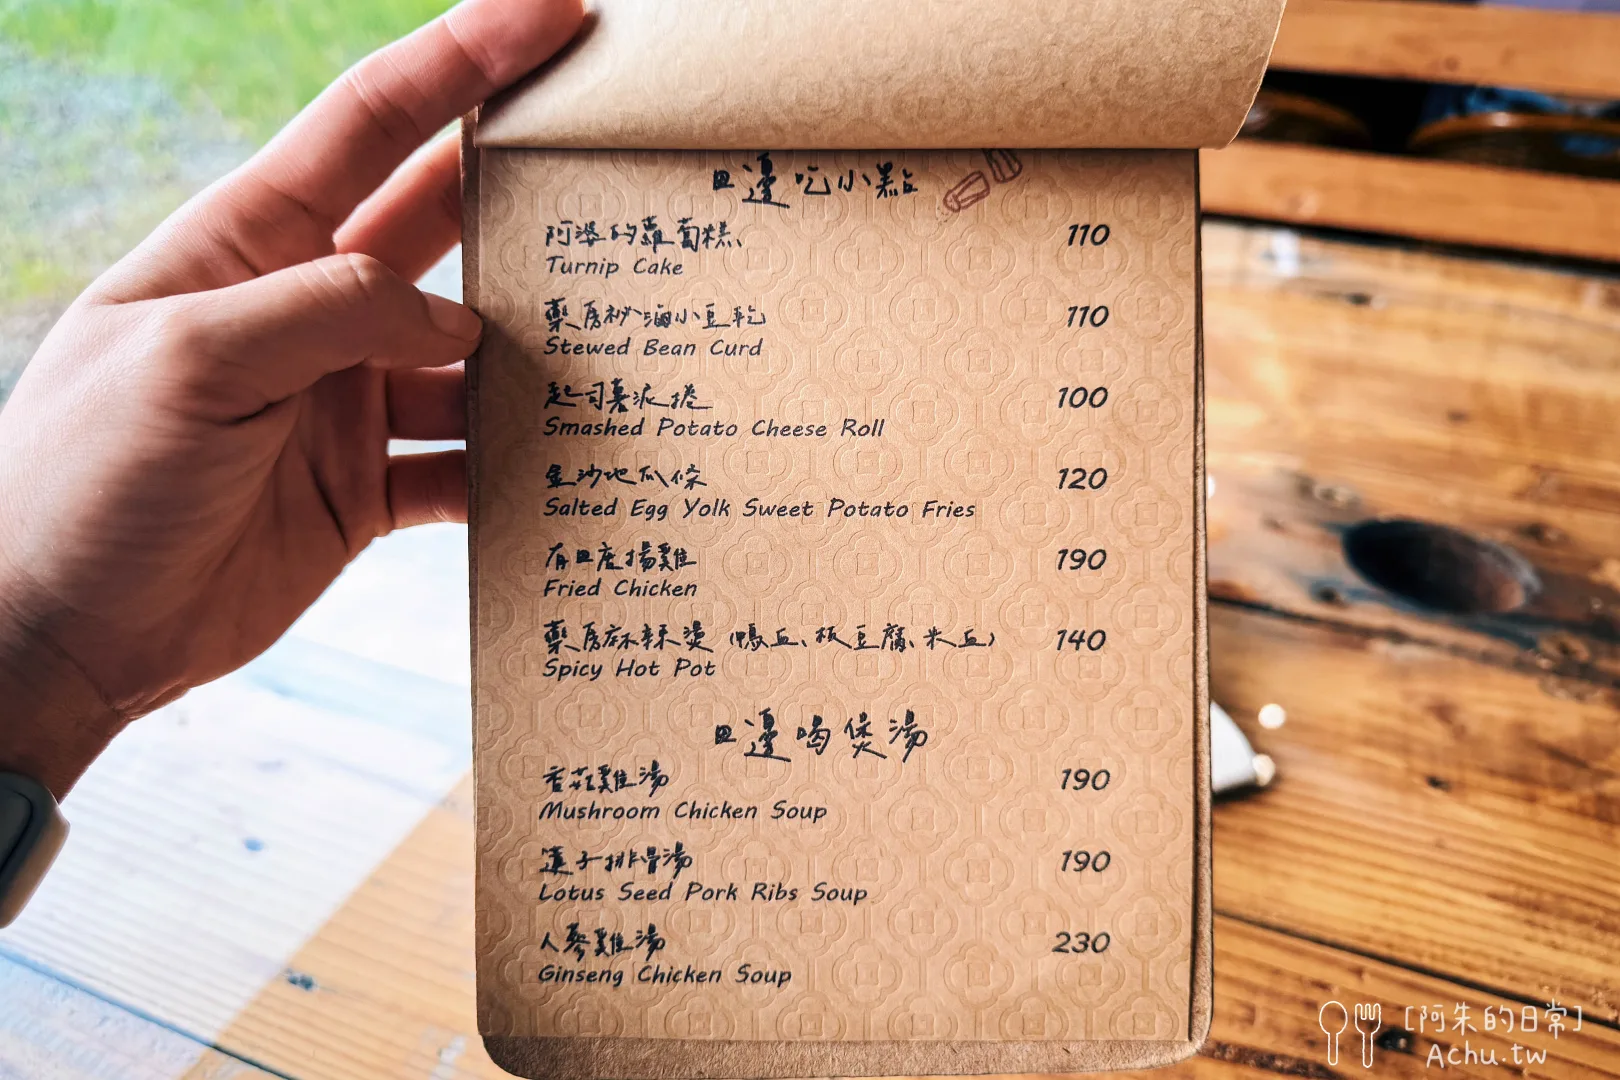 田邊吃小點
阿婆的蘿蔔糕 110
Turnip Cake
藥房祕滷小豆乾 110
Stewed Bean Curd
起司薯泥捲 100
Smashed Potato Cheese Roll
金沙地瓜條 120
Salted Egg Yolk Sweet Potato Fries
有田唐揚雞 190
Fried Chicken
藥房麻辣燙（鴨血、板豆腐、米血） 140
Spicy Hot Pot
田邊喝煲湯
香菇雞湯 190
Mushroom Chicken Soup
蓮子排骨湯 190
Lotus Seed Pork Ribs Soup
人蔘雞湯 230
Ginseng Chicken Soup
[阿朱的日常]
Achu.tw